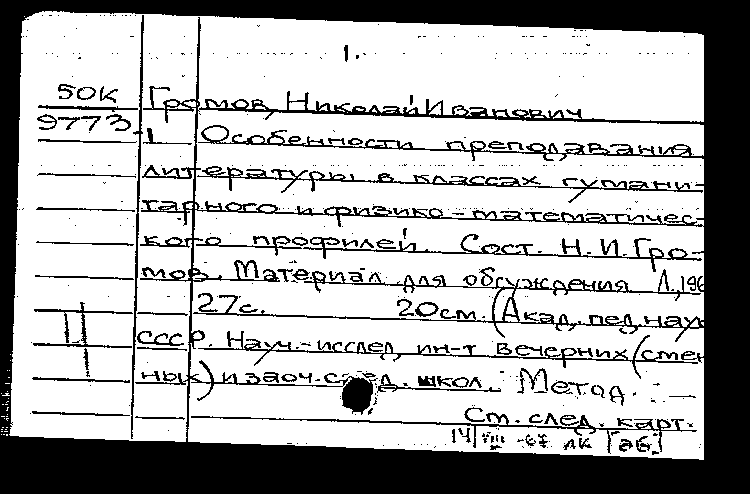 1.
50К Громов, Николай Иванович
9773-1 Особенности преподавания
литературы в классах гумани-
тарного и физико-математичес-
кого профилей. Сост. Н.И.Гро-
мов. Материал для обсуждения Л,196
27с. 20см. (Акад. пед. наук
СССР. Науч.-исслед, ин-т вечерних (смен
ных) и заоч. сред. школ. Метод. : —
Ц
См. след. карт.
14/VIII -67 ЛК